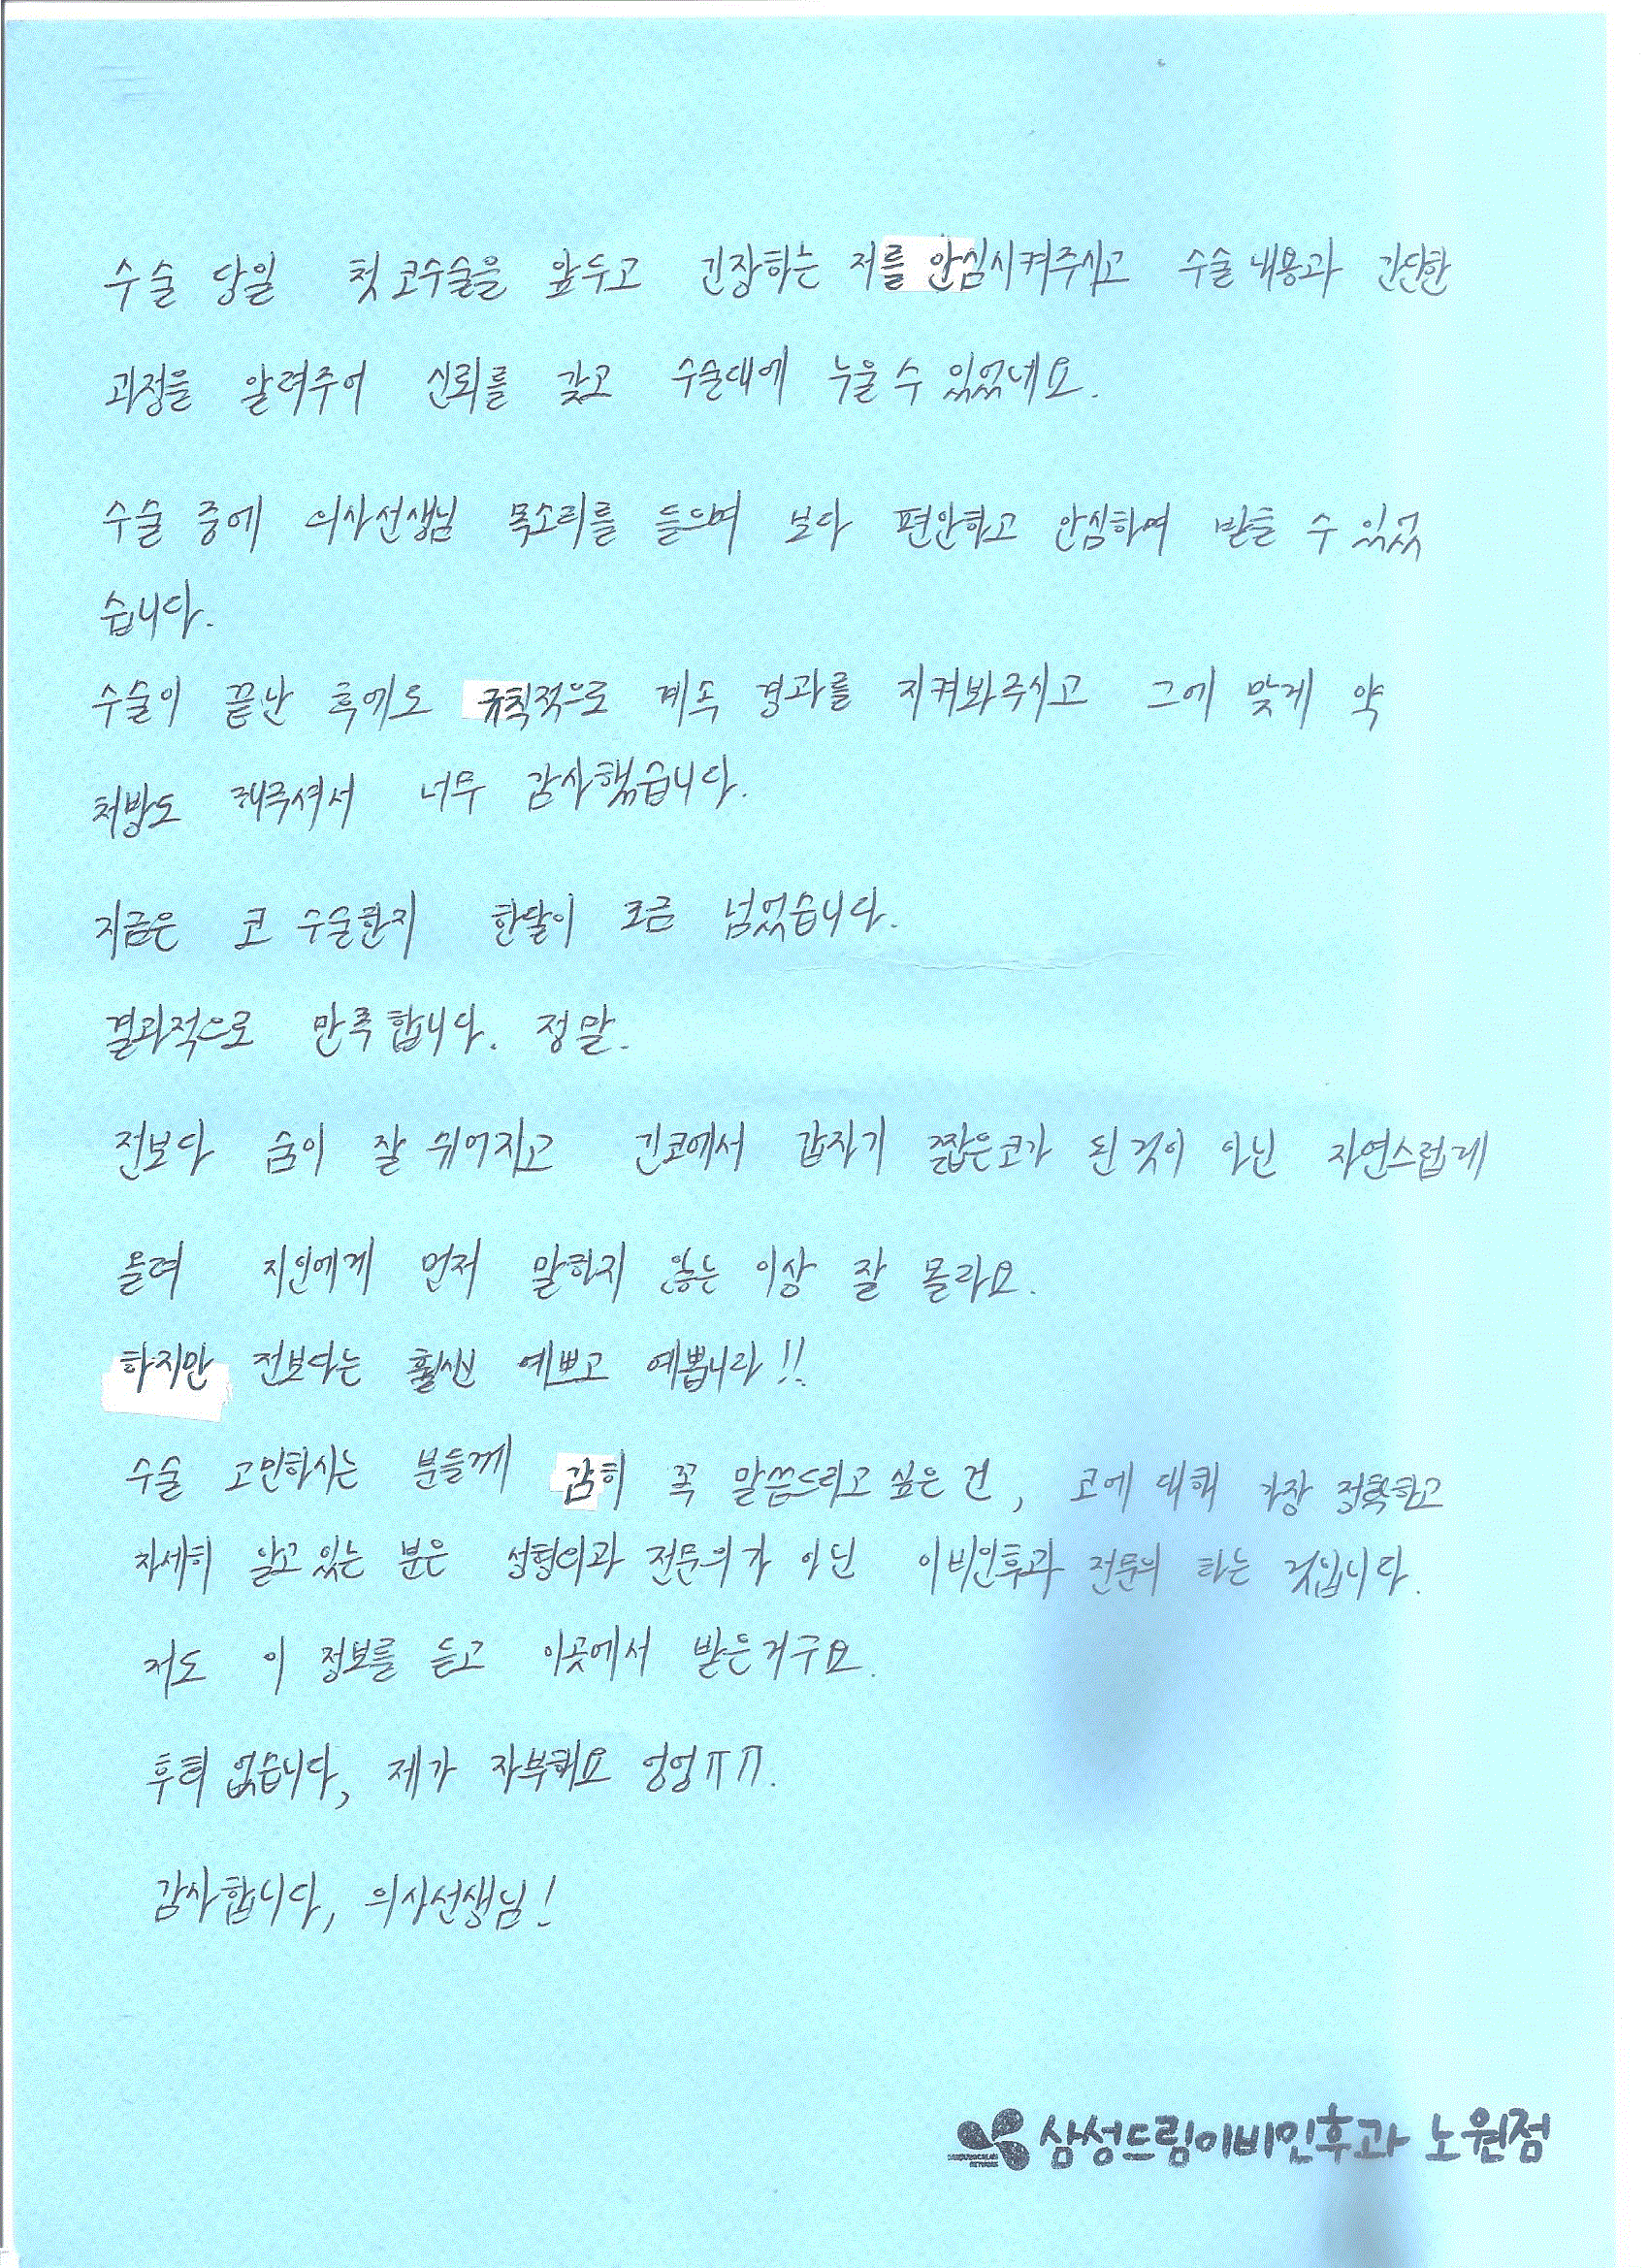 수술 당일 첫 코수술을 앞두고 긴장하는 저를 안심시켜주시고 수술내용과 간단한
과정을 알려주어 신뢰를 갖고 수술대에 누울 수 있었네요.
수술 중에 의사선생님 목소리를 들으며 보다 편안하고 안심하며 받을 수 있었
습니다.
수술이 끝난 후에도 규칙적으로 계속 경과를 지켜봐주시고 그에 맞게 약
처방도 해주셔서 너무 감사했습니다.
지금은 코 수술한지 한달이 조금 넘었습니다.
결과적으로 만족합니다. 정말.
전보다 숨이 잘 쉬어지고 긴코에서 갑자기 짧은코가 된 것이 아닌 자연스럽게
올려 지인에게 먼저 말하지 않는 이상 잘 몰라요.
하지만 전보다는 훨씬 예쁘고 예쁩니다!!
수술 고민하시는 분들께 감히 꼭 말씀드리고 싶은 건, 코에 대해 가장 정확하고
자세히 알고 있는 분은 성형외과 전문의가 아닌 이비인후과 전문의 라는 것입니다.
저도 이 정보를 듣고 이곳에서 받은거구요.
후회 없습니다, 제가 자부해요 엉엉ㅠㅠ.
감사합니다, 의사선생님!
삼성드림이비인후과 노원점